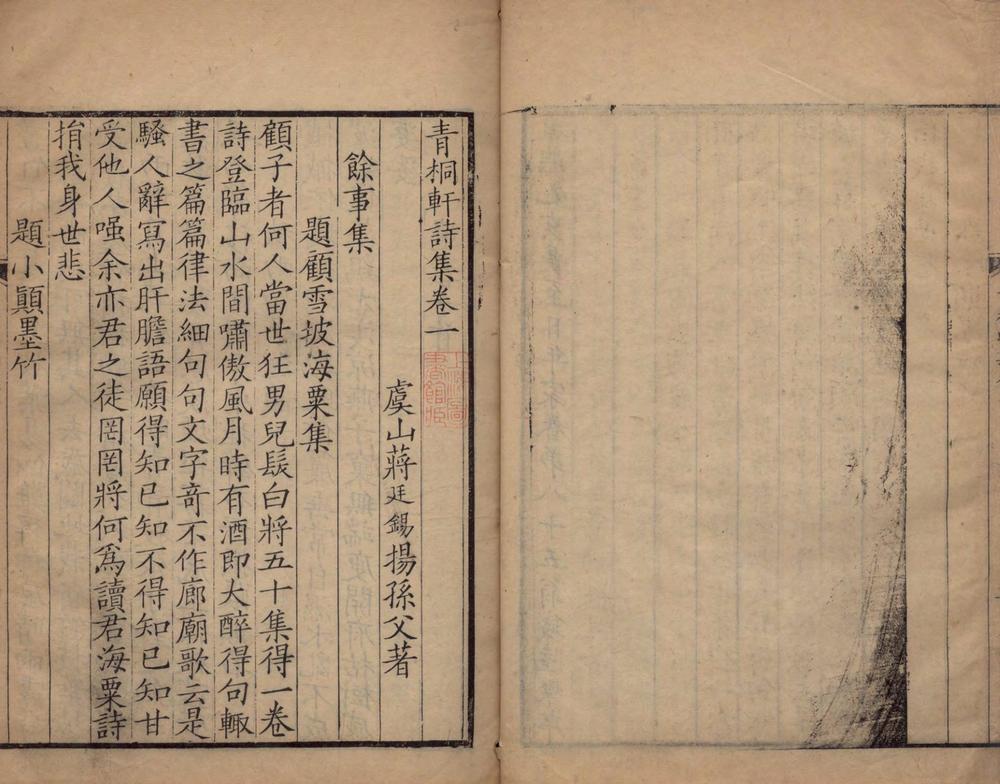 青桐軒詩集卷一
虞山蔣廷錫揚孫父著
餘事集
題顧雪坡海粟集
顧子者何人當世狂男兒髮白將五十集得一卷
詩登臨山水間嘯傲風月時有酒即大醉得句輙
書之篇篇律法細句句文字竒不作廊廟歌云是
騷人辭冩出肝膽語願得知已知不得知已知甘
受他人嗤余亦君之徒罔罔將何爲讀君海粟詩
捐我身世悲
題小顛墨竹